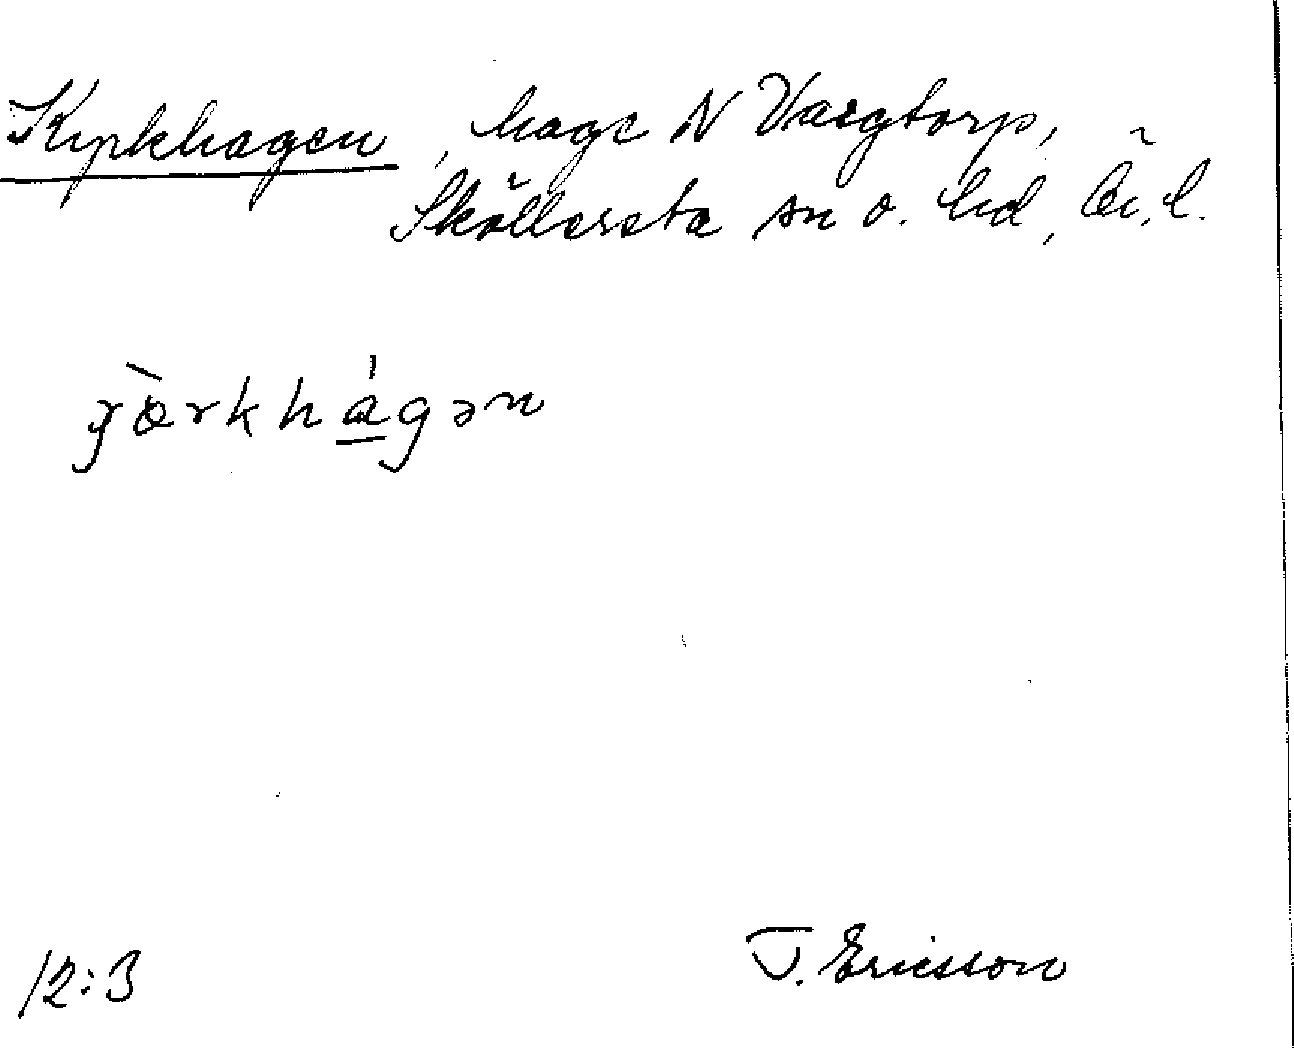 Kyrkhagen, hage N Vargtorp,
Sköllersta sn o. hd, Ör. l.
12:3
J. Ericsson